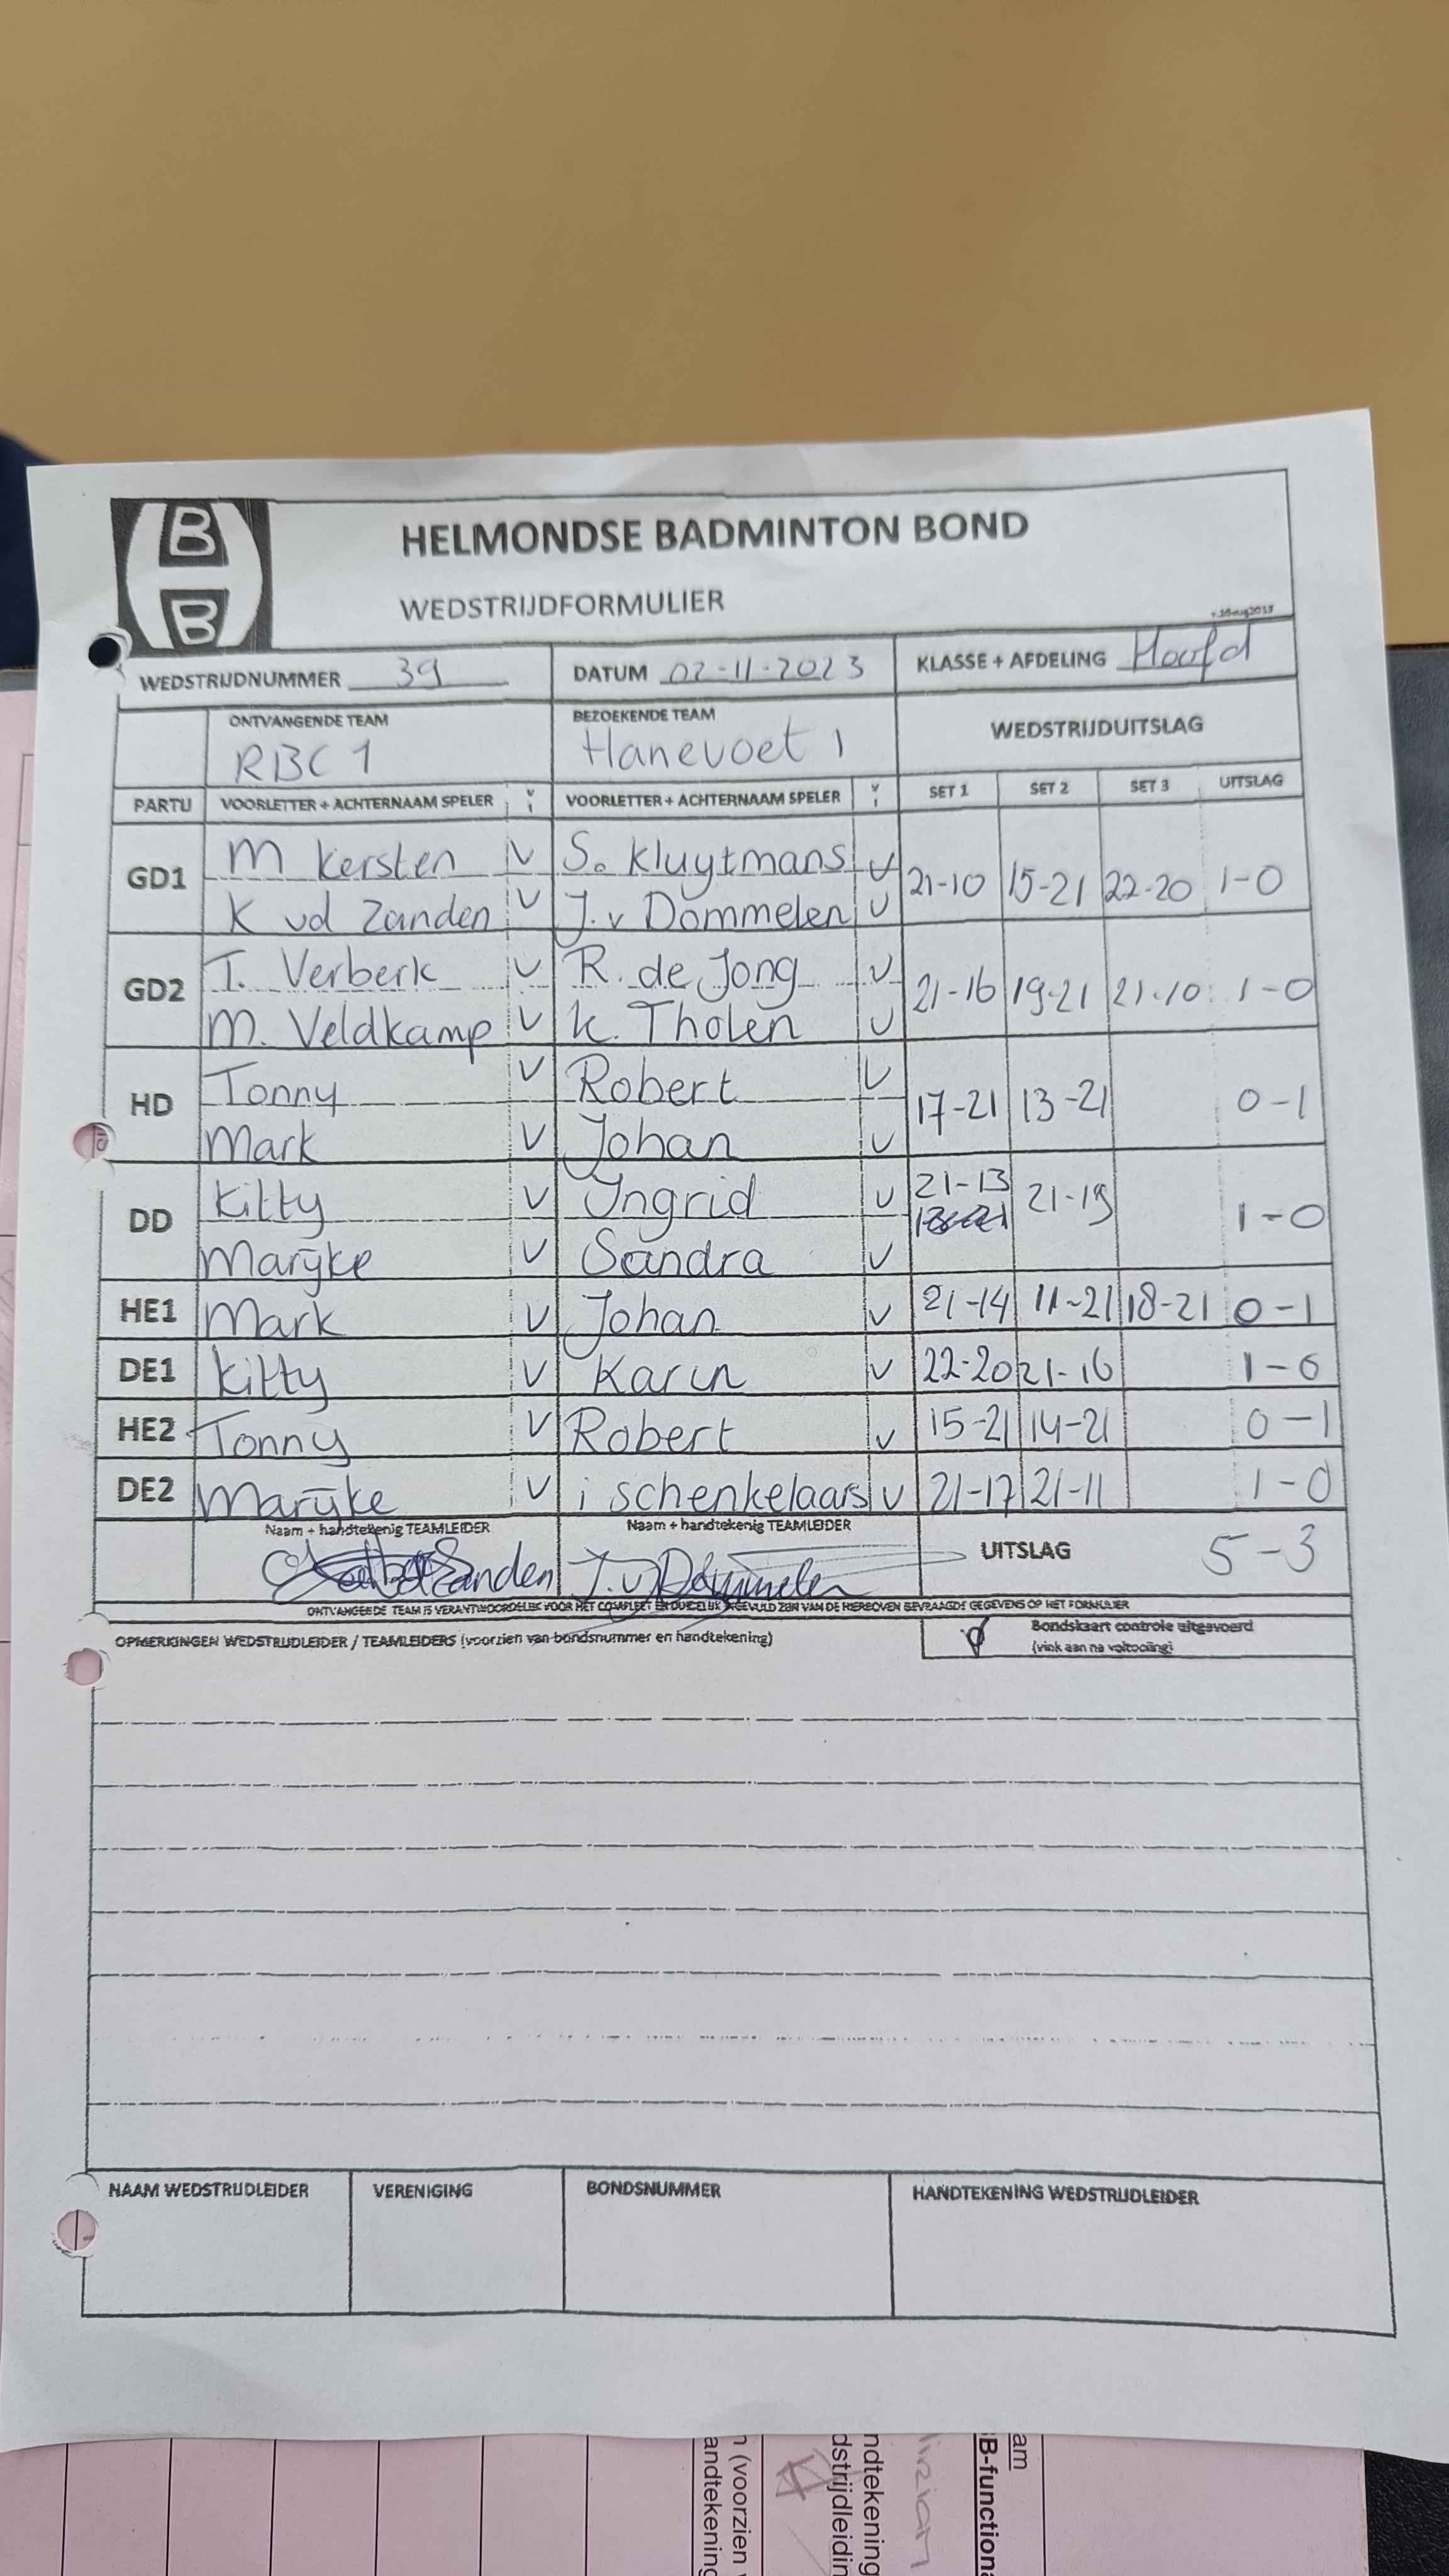 HELMONDSE BADMINTON BOND
WEDSTRIJDFORMULIER
WEDSTRIJDNUMMER 39 DATUM 02-11-2023 KLASSE + AFDELING Hoofd
ONTVANGENDE TEAM BEZOEKENDE TEAM WEDSTRIJDUITSLAG
RBC 1 Hanevoet 1
PARTIJ VOORLETTER + ACHTERNAAM SPELER V I VOORLETTER + ACHTERNAAM SPELER V I SET 1 SET 2 SET 3 UITSLAG
M Kersten V S. Kluytmans V
GD1 21-10 15-21 22-20 1-0
K vd Zanden V J. v Dommelen V
T. Verberk V R. de Jong V
GD2 21-16 19-21 21-10 1-0
M. Veldkamp V K. Tholen V
Tonny V Robert V
HD 17-21 13-21 0-1
Mark V Johan V
Kitty V Yngrid V 21-13
DD 21-19 1-0
Marijke V Sandra V
HE1 Mark V Johan V 21-14 11-21 18-21 0-1
DE1 Kitty V Karin V 22-20 21-16 1-0
HE2 Tonny V Robert V 15-21 14-21 0-1
DE2 Marijke V i schenkelaars V 21-17 21-11 1-0
Naam + handtekenig TEAMLEIDER Naam + handtekenig TEAMLEIDER
UITSLAG 5-3
Zanden J. v Dommelen
ONTVANGENDE TEAM IS VERANTWOORDELIJK VOOR HET COMPLEET EN DUIDELIJK INGEVULD ZIJN VAN DE HIERBOVEN GEVRAAGDE GEGEVENS OP HET FORMULIER
OPMERKINGEN WEDSTRIJDLEIDER / TEAMLEIDERS (voorzien van bondsnummer en handtekening)
Bondskaart controle uitgevoerd
(vink aan na voltooiing)
NAAM WEDSTRIJDLEIDER VERENIGING BONDSNUMMER HANDTEKENING WEDSTRIJDLEIDER
am
B-functiona
ndtekening
dstrijdleidin
n (voorzien v
andtekening